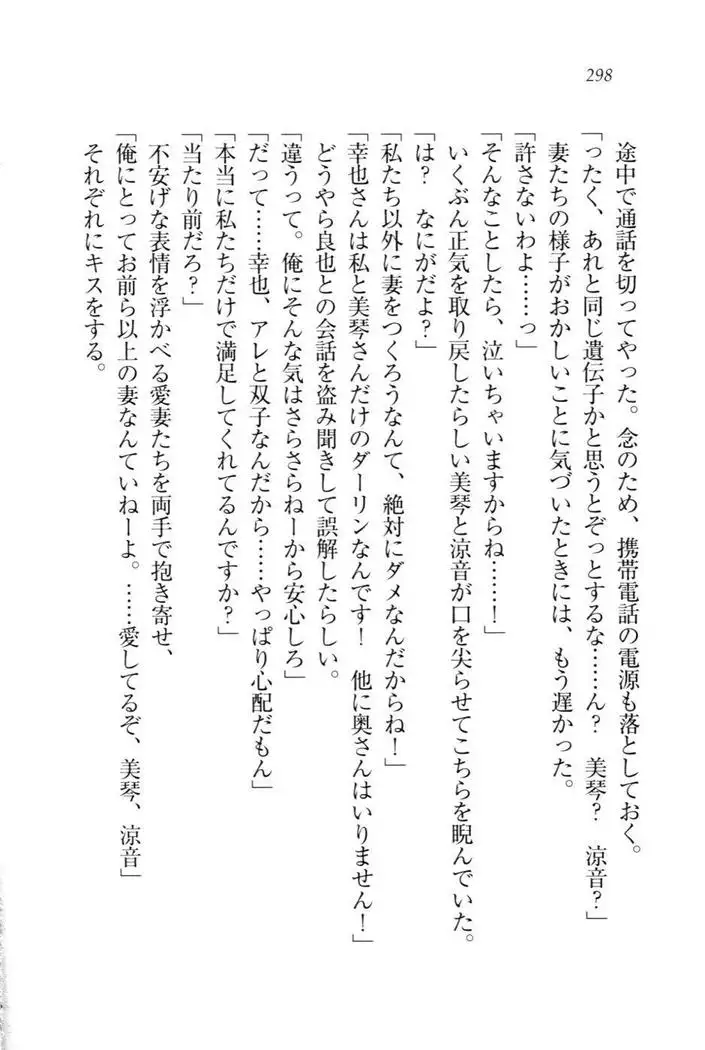 298
途中で通話を切ってやった。念のため、携帯電話の電源も落としておく。
「ったく、あれと同じ遺伝子かと思うとぞっとするな……ん？　美琴？　涼音？」
妻たちの様子がおかしいことに気づいたときには、もう遅かった。
「許さないわよ……っ」
「そんなことしたら、泣いちゃいますからね……！」
いくぶん正気を取り戻したらしい美琴と涼音が口を尖らせてこちらを睨んでいた。
「は？　なにがだよ？」
「私たち以外に妻をつくろうなんて、絶対にダメなんだからね！」
「幸也さんは私と美琴さんだけのダーリンなんです！　他に奥さんはいりません！」
どうやら良也との会話を盗み聞きして誤解したらしい。
「違うって。俺にそんな気はさらさらねーから安心しろ」
「だって……幸也、アレと双子なんだから……やっぱり心配だもん」
「本当に私たちだけで満足してくれてるんですか？」
「当たり前だろ？」
不安げな表情を浮かべる愛妻たちを両手で抱き寄せ、
「俺にとってお前ら以上の妻なんていねーよ。……愛してるぞ、美琴、涼音」
それぞれにキスをする。